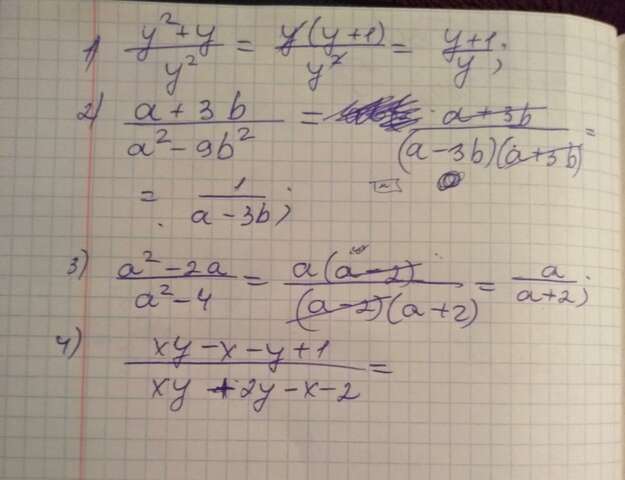 1) (y²+y)/y² = y(y+1)/y² = (y+1)/y;
2) (a+3b)/(a²-9b²) = (a+3b)/((a-3b)(a+3b)) =
= 1/(a-3b);
3) (a²-2a)/(a²-4) = a(a-2)/((a-2)(a+2)) = a/(a+2);
4) (xy-x-y+1)/(xy+2y-x-2) =